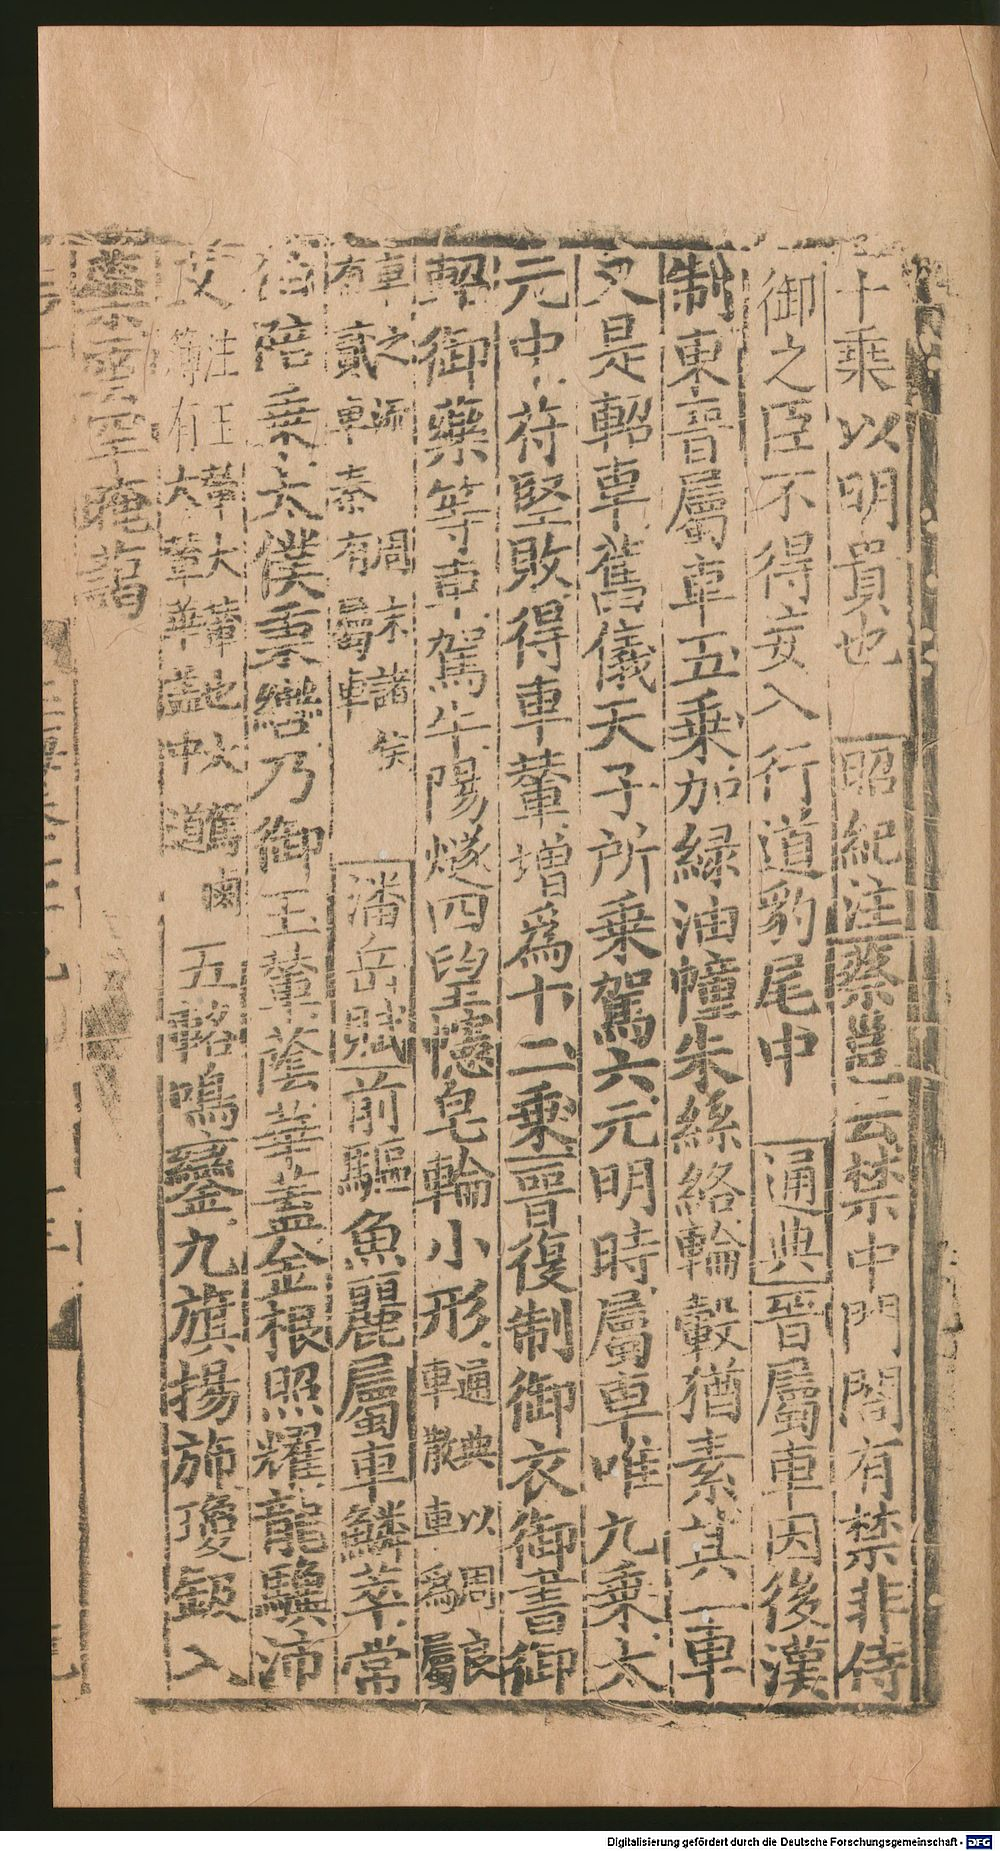 十乘以明貴也 昭紀注蔡邕云禁中門閤有禁非侍
御之臣不得妄入行道豹尾中 通典晋屬車因後漢
制東晋屬車五乘加緑油幢朱絲絡輪轂猶素其一車
又是軺車舊儀天子所乘駕六元明時屬車唯九乘太
元中苻堅敗得車輦增爲十二乘晋復制御衣御書御
軺御藥等車駕牛陽燧四望幰皂輪小形通典以周
車散車爲屬
車之 周末諸侯
有貳車秦有屬車 潘岳賦前驅魚麗屬車鱗萃常
伯陪乘太僕秉轡乃御玉輦蔭華蓋金根照耀龍驥沛
艾注王 大輦 五輅鳴鑾九旗揚斾瓊鈒入
有大輦華蓋中道
雲罕晻藹
Digitalisierung gefördert durch die Deutsche Forschungsgemeinschaft - DFG